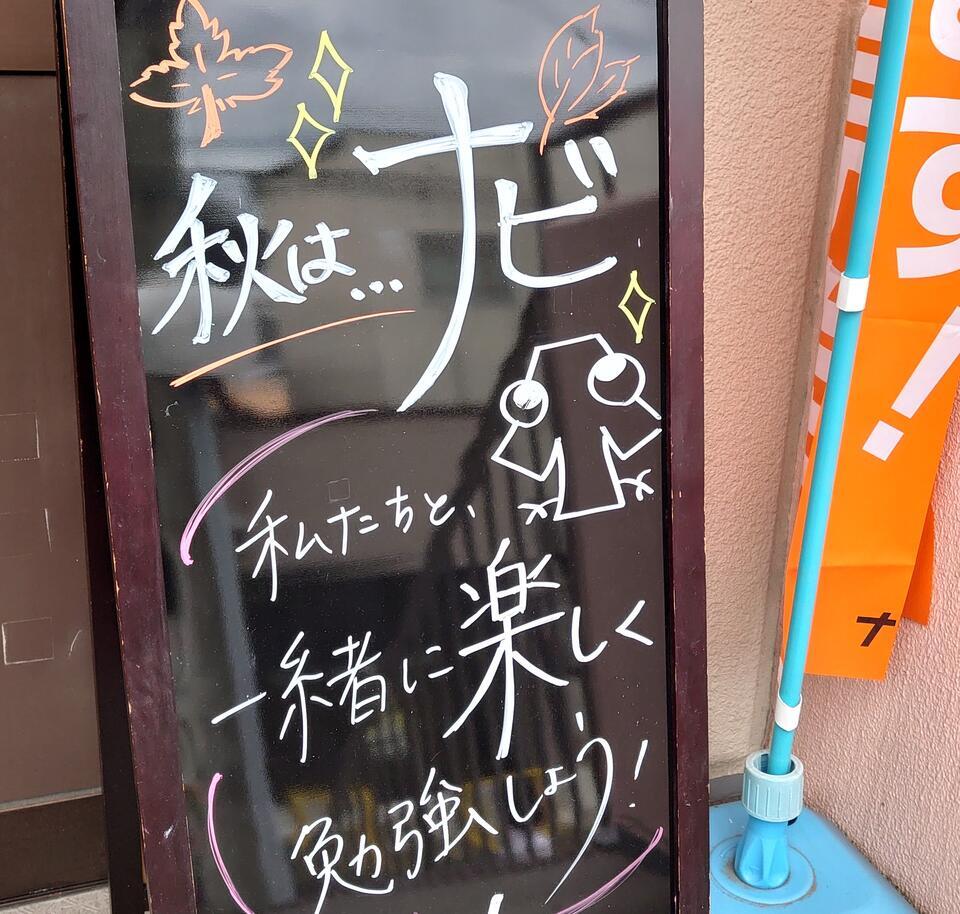 秋は…ナビ
私たちと、
一緒に楽しく
勉強しょう!
!
ナ